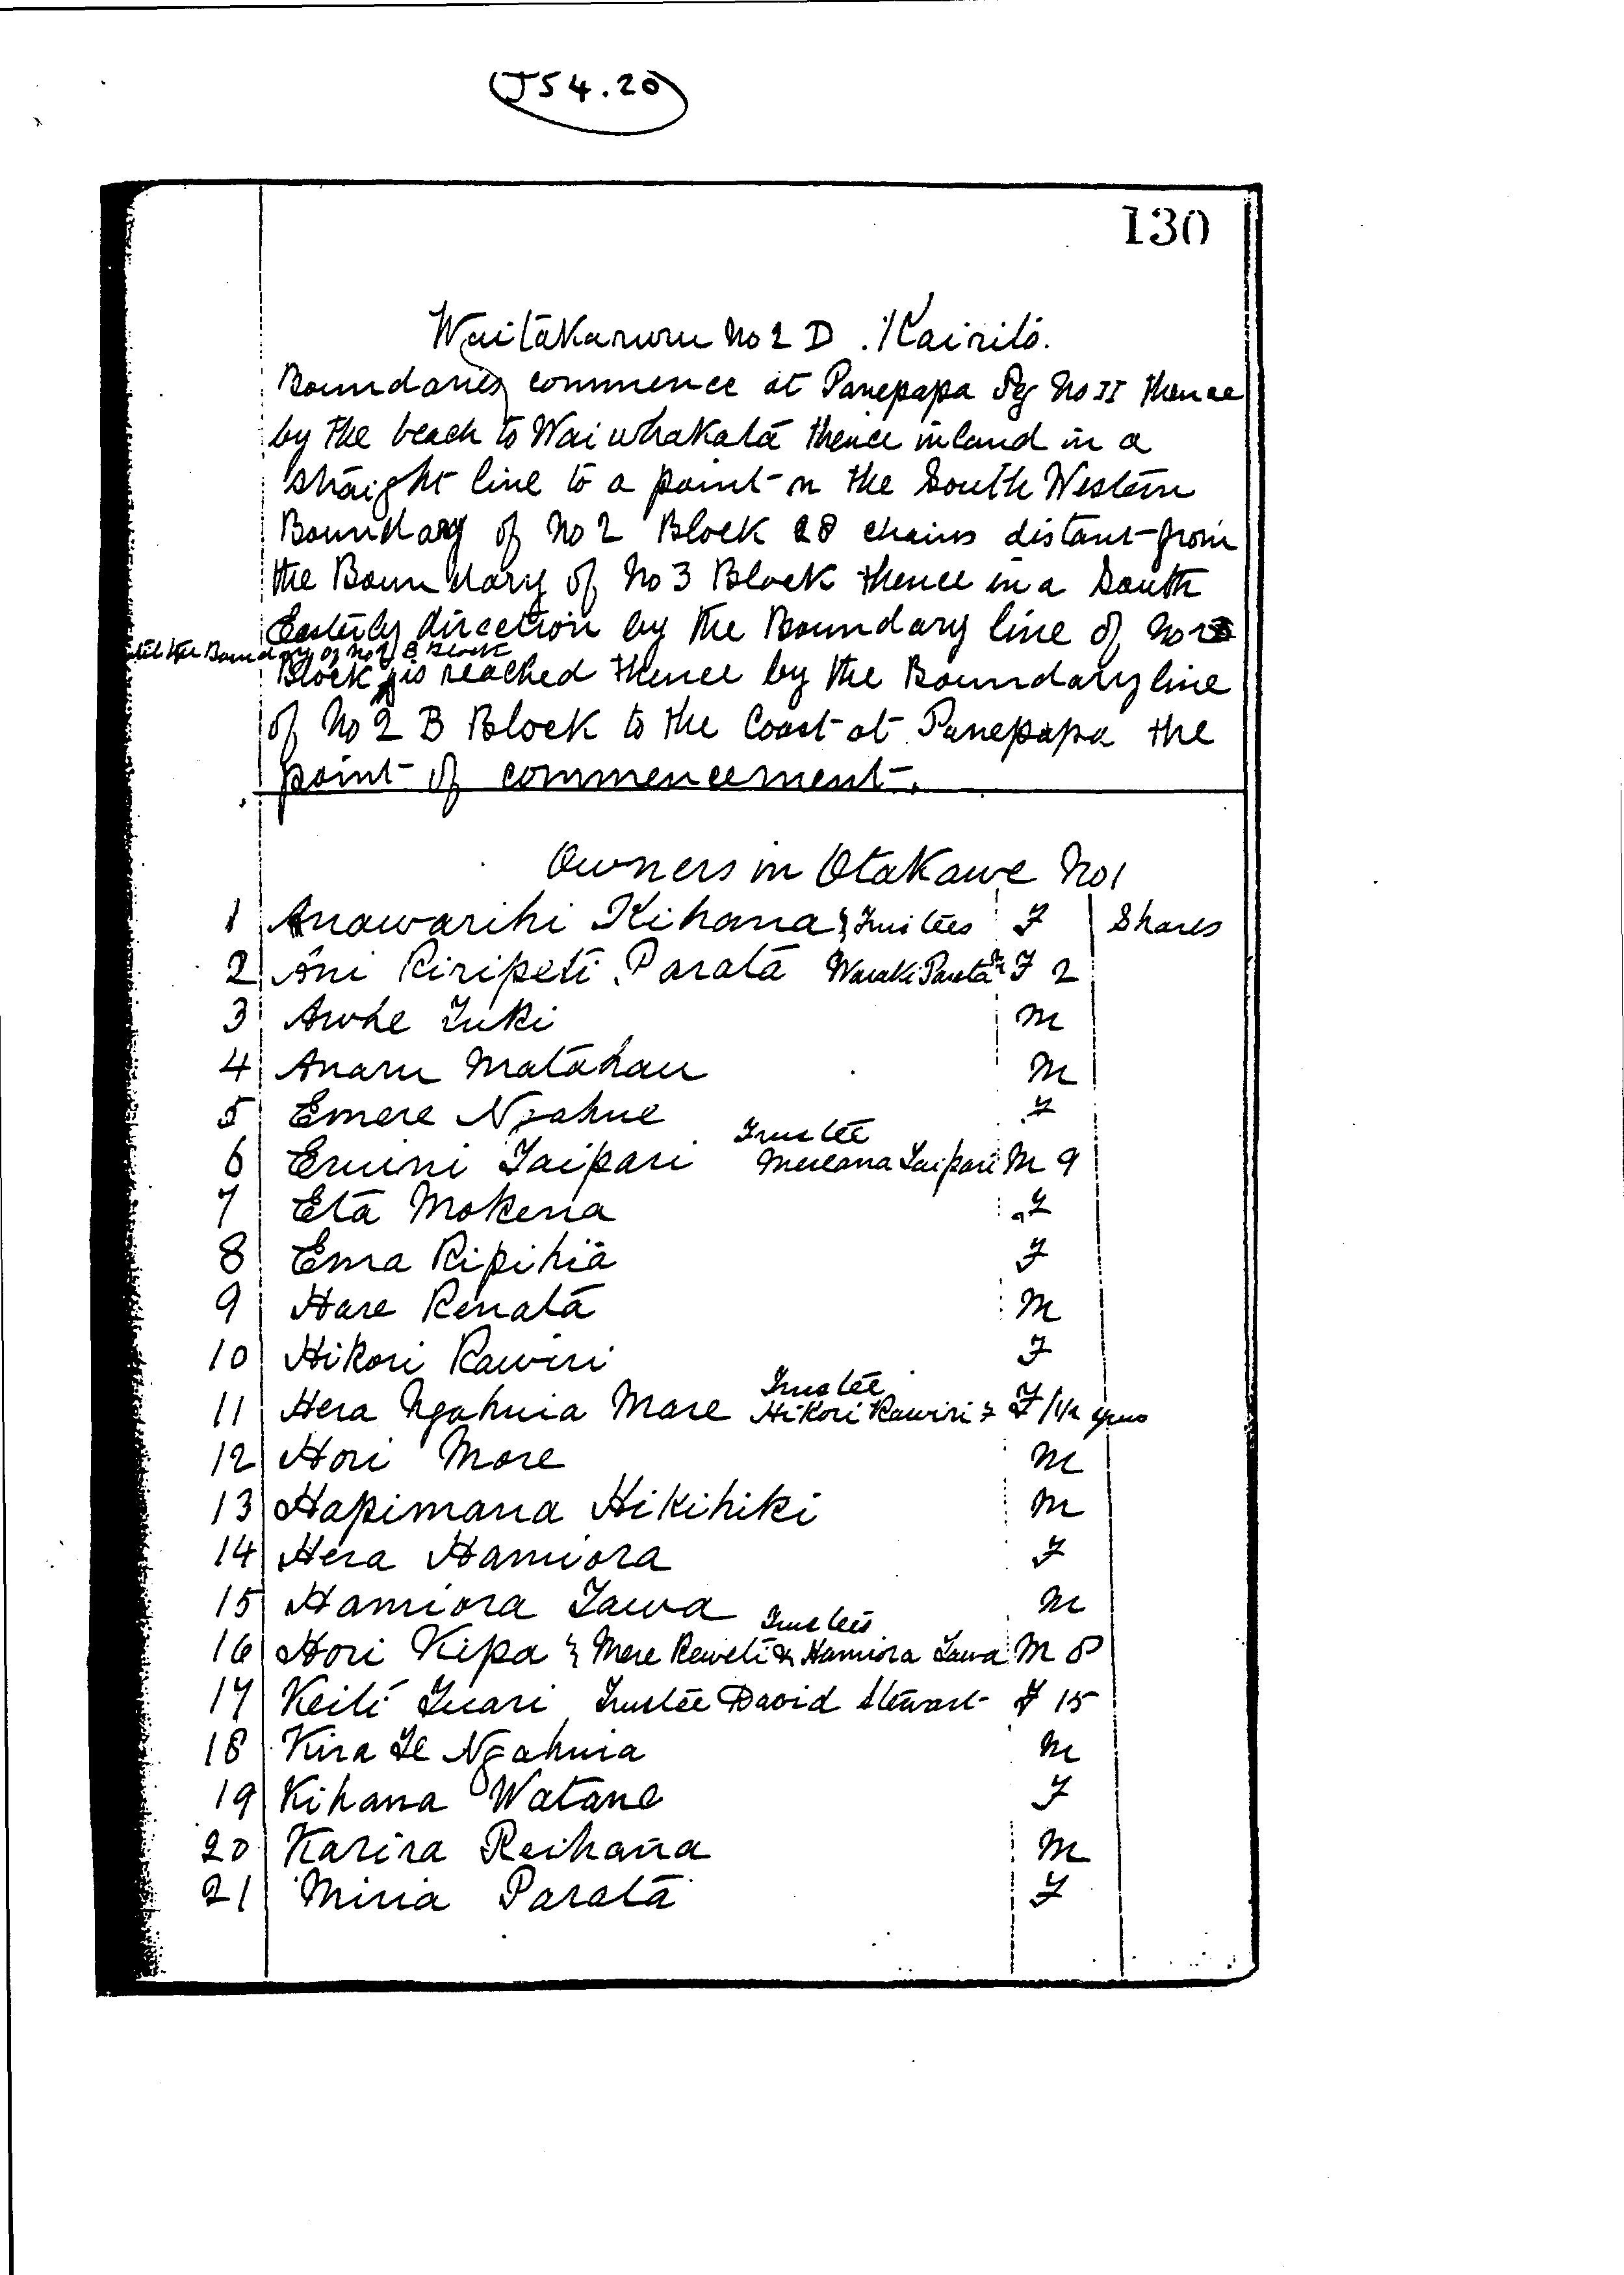 J54.20
130
Waitakaruru No 2 D. Kairito.
Boundaries commence at Panepapa Peg No II thence
by the beach to Waiwhakata thence inland in a
straight line to a point on the South Western
Boundary of No 2 Block 28 chains distant from
the Boundary of No 3 Block thence in a South
Easterly direction by the Boundary line of No 2
until the Boundary of No 2 B Block
Block is reached thence by the Boundary line
of No 2 B Block to the Coast at Panepapa the
point of commencement.
Owners in Otakawe No 1
1 Anawarihi Kihana & Trustees F Shares
2 Ani Riripeti Parata Waraki Parata F 2
3 Awhe Tuki M
4 Anaru Matahau M
5 Emere Ngahue F
Trustee
6 Eruini Taipari Mereana Taipari M 9
7 Eta Mokena F
8 Ema Ripihia F
9 Hare Renata M
10 Hikori Rawiri F
Trustee
11 Hera Ngahuia More Hikori Rawiri F 1 1/2 years
12 Hori More M
13 Hapimana Hikihiki M
14 Hera Hamiora F
15 Hamiora Tawa M
Trustees
16 Hori Kipa Mere Reweti & Hamiora Tawa M 8
17 Keiti Tuari Trustee David Stewart F 15
18 Kira Te Ngahuia M
19 Kihana Watane F
20 Karira Reihana M
21 Miria Parata F